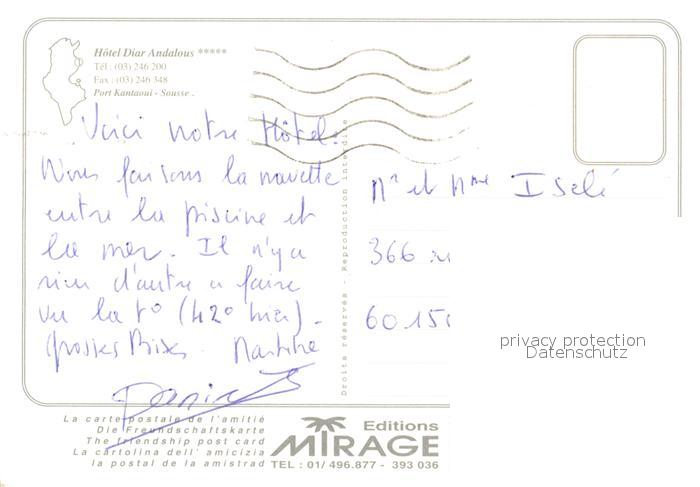 Hôtel Diar Andalous *****
Tél : (03) 246 200
Fax : (03) 246 348
Port Kantaoui - Sousse .
Voici notre Hôtel.
Nous faisons la navette
entre la piscine et
la mer. Il n'y a
rien d'autre a faire
vu la t° (42° hier).
Grosses Bises. Martine
Droits réservés - Reproduction interdite
Mr et Mme Iselé
366
60150
privacy protection
Datenschutz
La carte postale de l'amitié
Die Freundschaftskarte
The friendship post card
La cartolina dell' amicizia
la postal de la amistrad
Editions
MIRAGE
TEL : 01/ 496.877 - 393 036